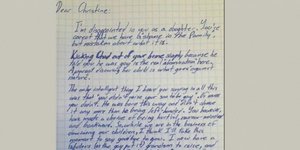 Dear Christine:
I'm disappointed in you as a daughter. You're
correct that we have a shame in the family,
but mistaken about what it is.
Kicking Chad out of your home simply because he
told you he was gay is the real abomination here.
A parent disowning her child is what goes against
nature.
The only intelligent thing I heard you saying in all this
was that "you didn't raise your son to be gay". Of course
you didn't. He was born this way and didn't choose
it any more than he being left-handed. You however,
have made a choice of being hurtful, narrow-minded
and backward. So, while we are in the business of
disowning our children, I think I'll take this
moment to say goodbye to you. I now have a
fabulous to raise, and